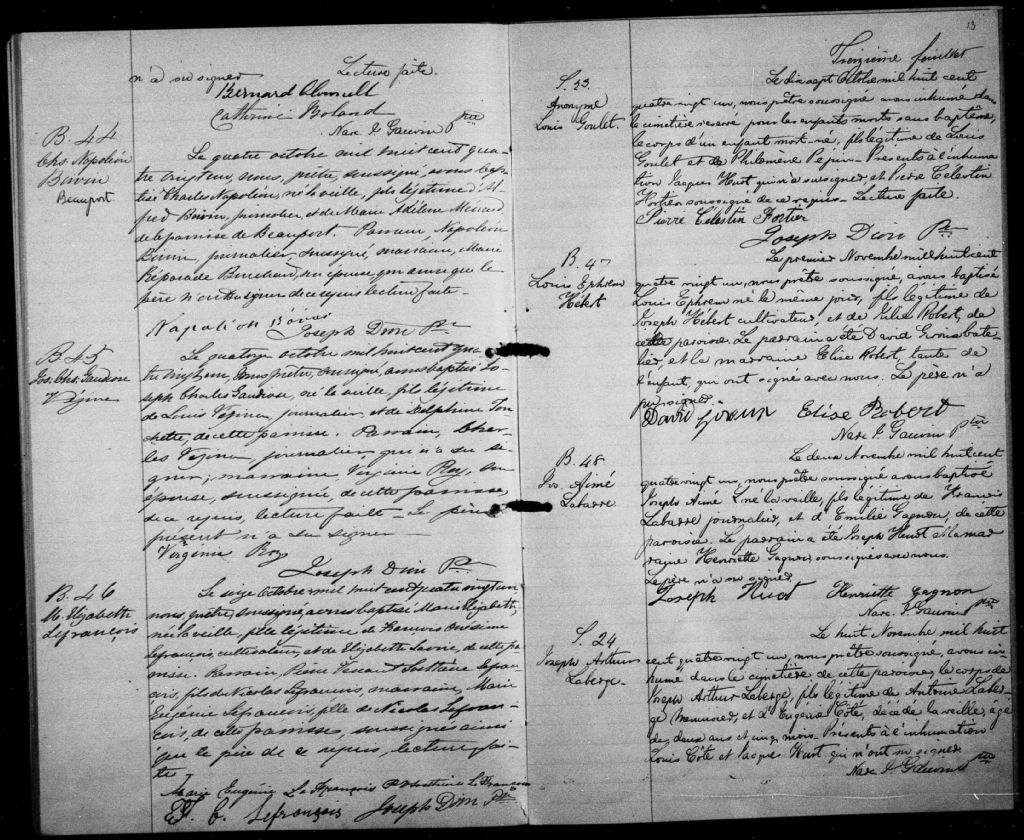 n'a su signer Lecture faite.
Bernard
Catherine Boland
Narc J. Gauvin Ptre
B. 44
Chs Napoléon
Boivin
Beauport
Le quatre octobre mil huit cent qua-
tre vingt un, nous, prêtre, soussigné, avons bap-
tisé Charles Napoléon, né la veille, fils légitime d'Al-
fred Boivin, journalier, et de Marie Adiléne Ménard
de la paroisse de Beauport. Parrain, Napoléon
Boivin, journalier, soussigné, marraine, Marie
Réparade Bouchard, son épouse, qui ainsi que le
père n'ont su signer de ce requis lecture faite.
Napoléon Boivin
Joseph Dion Ptre
B. 45
Jos. Chs. Gaudiose
Vézina
Le quatorze octobre mil huit cent qua-
tre vingt un, nous prêtre, soussigné, avons baptisé Jo-
seph Charles Gaudiose, né la veille, fils légitime
de Louis Vézina, journalier, et de Delphine
de cette paroisse. Parrain, Char-
les Vézina, journalier, qui n'a su si-
gner; marraine, Virginie Roy, son
épouse, soussignée, de cette paroisse,
de ce requis, lecture faite. Le père
présent n'a su signer
Virginie Roy
Joseph Dion Ptre
B. 46
M. Elizabeth
Lefrançois
Le seize Octobre mil huit cent quatre vingt un
nous, prêtre, soussigné avons baptisé Marie Elizabeth,
née la veille, fille légitime de François Onésime
Lefrançois, cultivateur, et de Elizabeth de cette pa-
roisse. Parrain, Pierre Lefran-
çois, fils de Nicolas Lefrançois, marraine, Marie
Eugénie Lefrançois, fille de Nicolas Lefran-
çois, de cette paroisse, soussignés ainsi
que le père de ce requis, lecture fai-
te
Marie Eugénie Lefrançois Lefrançois
Lefrançois Joseph Dion Ptre
13
Treizième feuillet
S. 23
Anonyme
Louis Goulet.
Le dix sept Octobre mil huit cent
quatre vingt un, nous prêtre soussigné avons inhumé dans
le cimetière réservé pour les enfants morts sans baptême,
le corps d'un enfant mort-né, fils légitime de Louis
Goulet et de Philomène Pepin. Présents à l'inhuma
tion Jacques Huot qui n'a su signer et Pierre Célestin
Fortier soussigné de ce requis. Lecture faite.
Pierre Célestin Fortier
Joseph Dion Ptre
B. 47
Louis Ephrem
Hébert
Le premier Novembre mil huit cent
quatre vingt un, nous prêtre soussigné, avons baptisé
Louis Ephrem né le même jour, fils légitime de
Joseph Hébert cultivateur, et de Robert, de
cette paroisse. Le parrain a été David bate-
lier, et la marraine Elise Robert, tante de
l'enfant, qui ont signé avec nous. Le père n'a
pu signer.
David Elise Robert
Narc J. Gauvin ptre
B. 48
Jos. Aimé
Labarre
Le deux Novembre mil huit cent
quatre vingt un, nous prêtre soussigné avons baptisé
Joseph Aimé né la veille, fils légitime de Francis
Labarre journalier, et d'Emilie Gagnon, de cette
paroisse. Le parrain a été Joseph Huot et la mar
raine Henriette Gagnon soussignés avec nous.
Le père n'a su signer
Joseph Huot Henriette gagnon
Narc. J. Gauvin ptre
S. 24
Joseph Arthur
Laberge.
Le huit Novembre mil huit
cent quatre vingt un, nous prêtre soussigné, avons in-
humé dans le cimetière de cette paroisse, le corps de
Joseph Arthur Laberge, fils légitime de Antoine Laber-
ge et d'Eugénie Côté, décédé la veille, âgé
de deux ans et cinq mois. Présents à l'inhumation
Louis Côté et Jacques Huot qui n'ont su signer
Narc J. Gauvin ptre